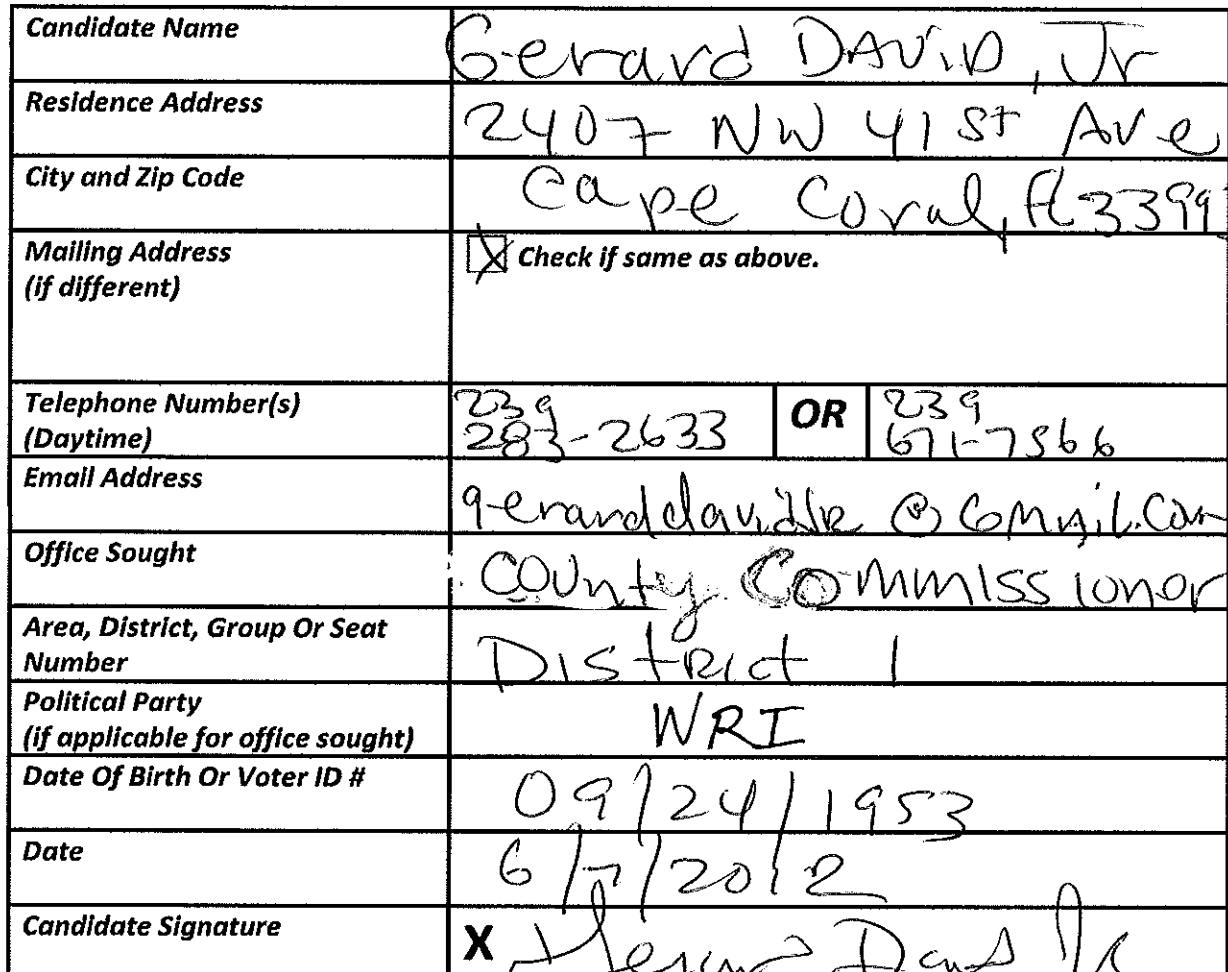 Candidate Name Gerard DAViD, Jr
Residence Address 2407 NW 41 St Ave
City and Zip Code Cape Coral, FL 3399
Mailing Address
(if different)
X Check if same as above.
Telephone Number(s)
(Daytime)
239
283-2633
OR
239
671-7566
Email Address gerarddavidJR @ GMail.Com
Office Sought County Commissioner
Area, District, Group Or Seat
Number
District 1
Political Party
(if applicable for office sought)
WRI
Date Of Birth Or Voter ID # 09/24/1953
Date 6/7/2012
Candidate Signature X Gerard David Jr